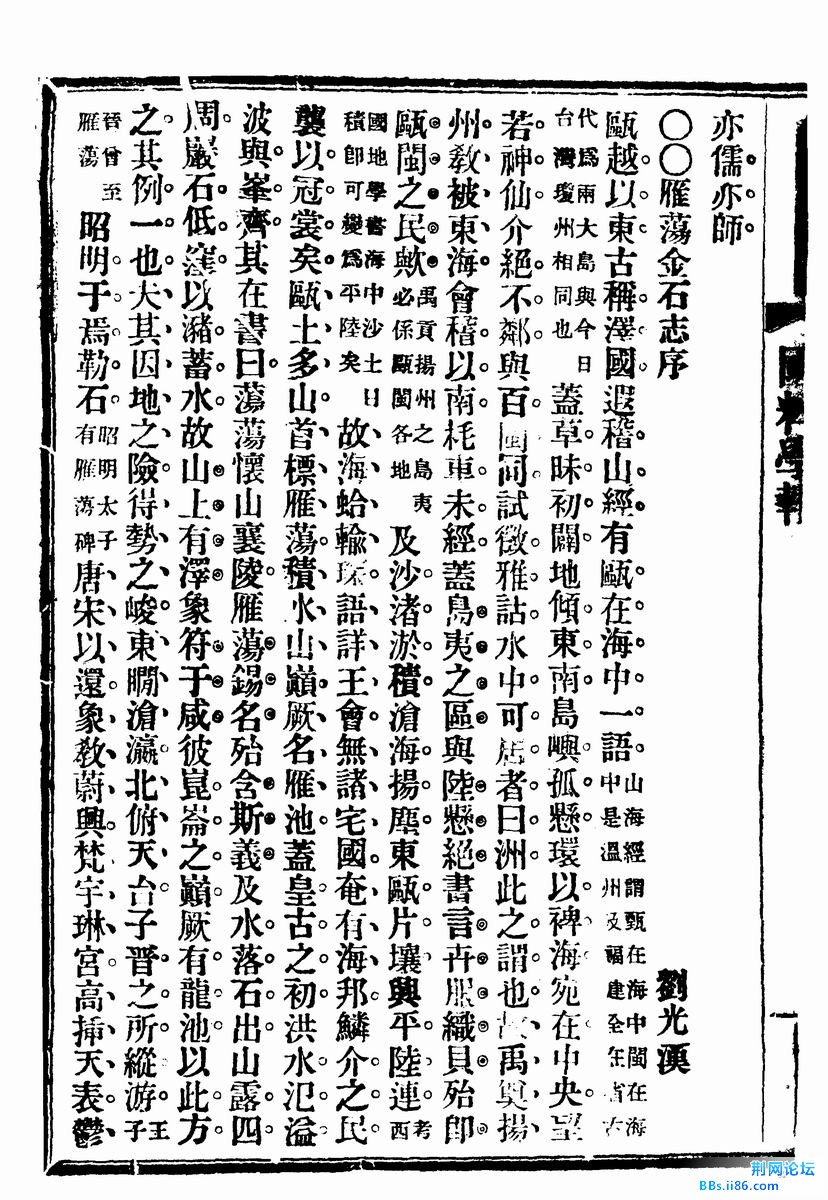 國粹學報
亦儒亦師。
〇〇雁蕩金石志序　劉光漢
甌越以東古稱澤國。遐稽山經。有甌在海中一語。山海經謂甌在海中閩在海中是溫州及福建全省古
代爲兩大島與今日台灣瓊州相同也蓋草昧初闢。地傾東南。島嶼孤懸。環以裨海。宛在中央。望
若神仙。介絕不鄰。與百閩同。試徵雅詁。水中可居者曰洲。此之謂也。故禹奠揚
州。敎被東海。會稽以南。耗車未經。蓋島夷之區。與陸懸絕。書言卉服織貝。殆卽
甌閩之民歟。禹貢揚州之島夷必係甌閩各地及沙渚淤積。滄海揚塵。東甌片壤。興平陸連。考西
國地學書海中沙土日積卽可變爲平陸矣故海蛤輸琛。語詳王會。無諸宅國。奄有海邦。鱗介之民。
襲以冠裳矣。甌土多山。首標雁蕩。積水山巔。厥名雁池。蓋皇古之初。洪水氾溢。
波與峯齊。其在書曰。蕩蕩懷山襄陵。雁蕩錫名。殆含斯義。及水落石出。山露四
周。巖石低窪。以瀦蓄水。故山上有澤。象符于咸。彼崑崙之巔。厥有龍池。以此方
之。其例一也。夫其因地之險。得勢之峻。東矙滄瀛。北俯天台。子晋之所縱游。王子
晉曾至雁蕩昭明于焉勒石。昭明太子有雁蕩碑唐宋以還。象敎蔚興。梵宇琳宮。高揷天表。鬱
荆网论坛
BBs.ii86.com